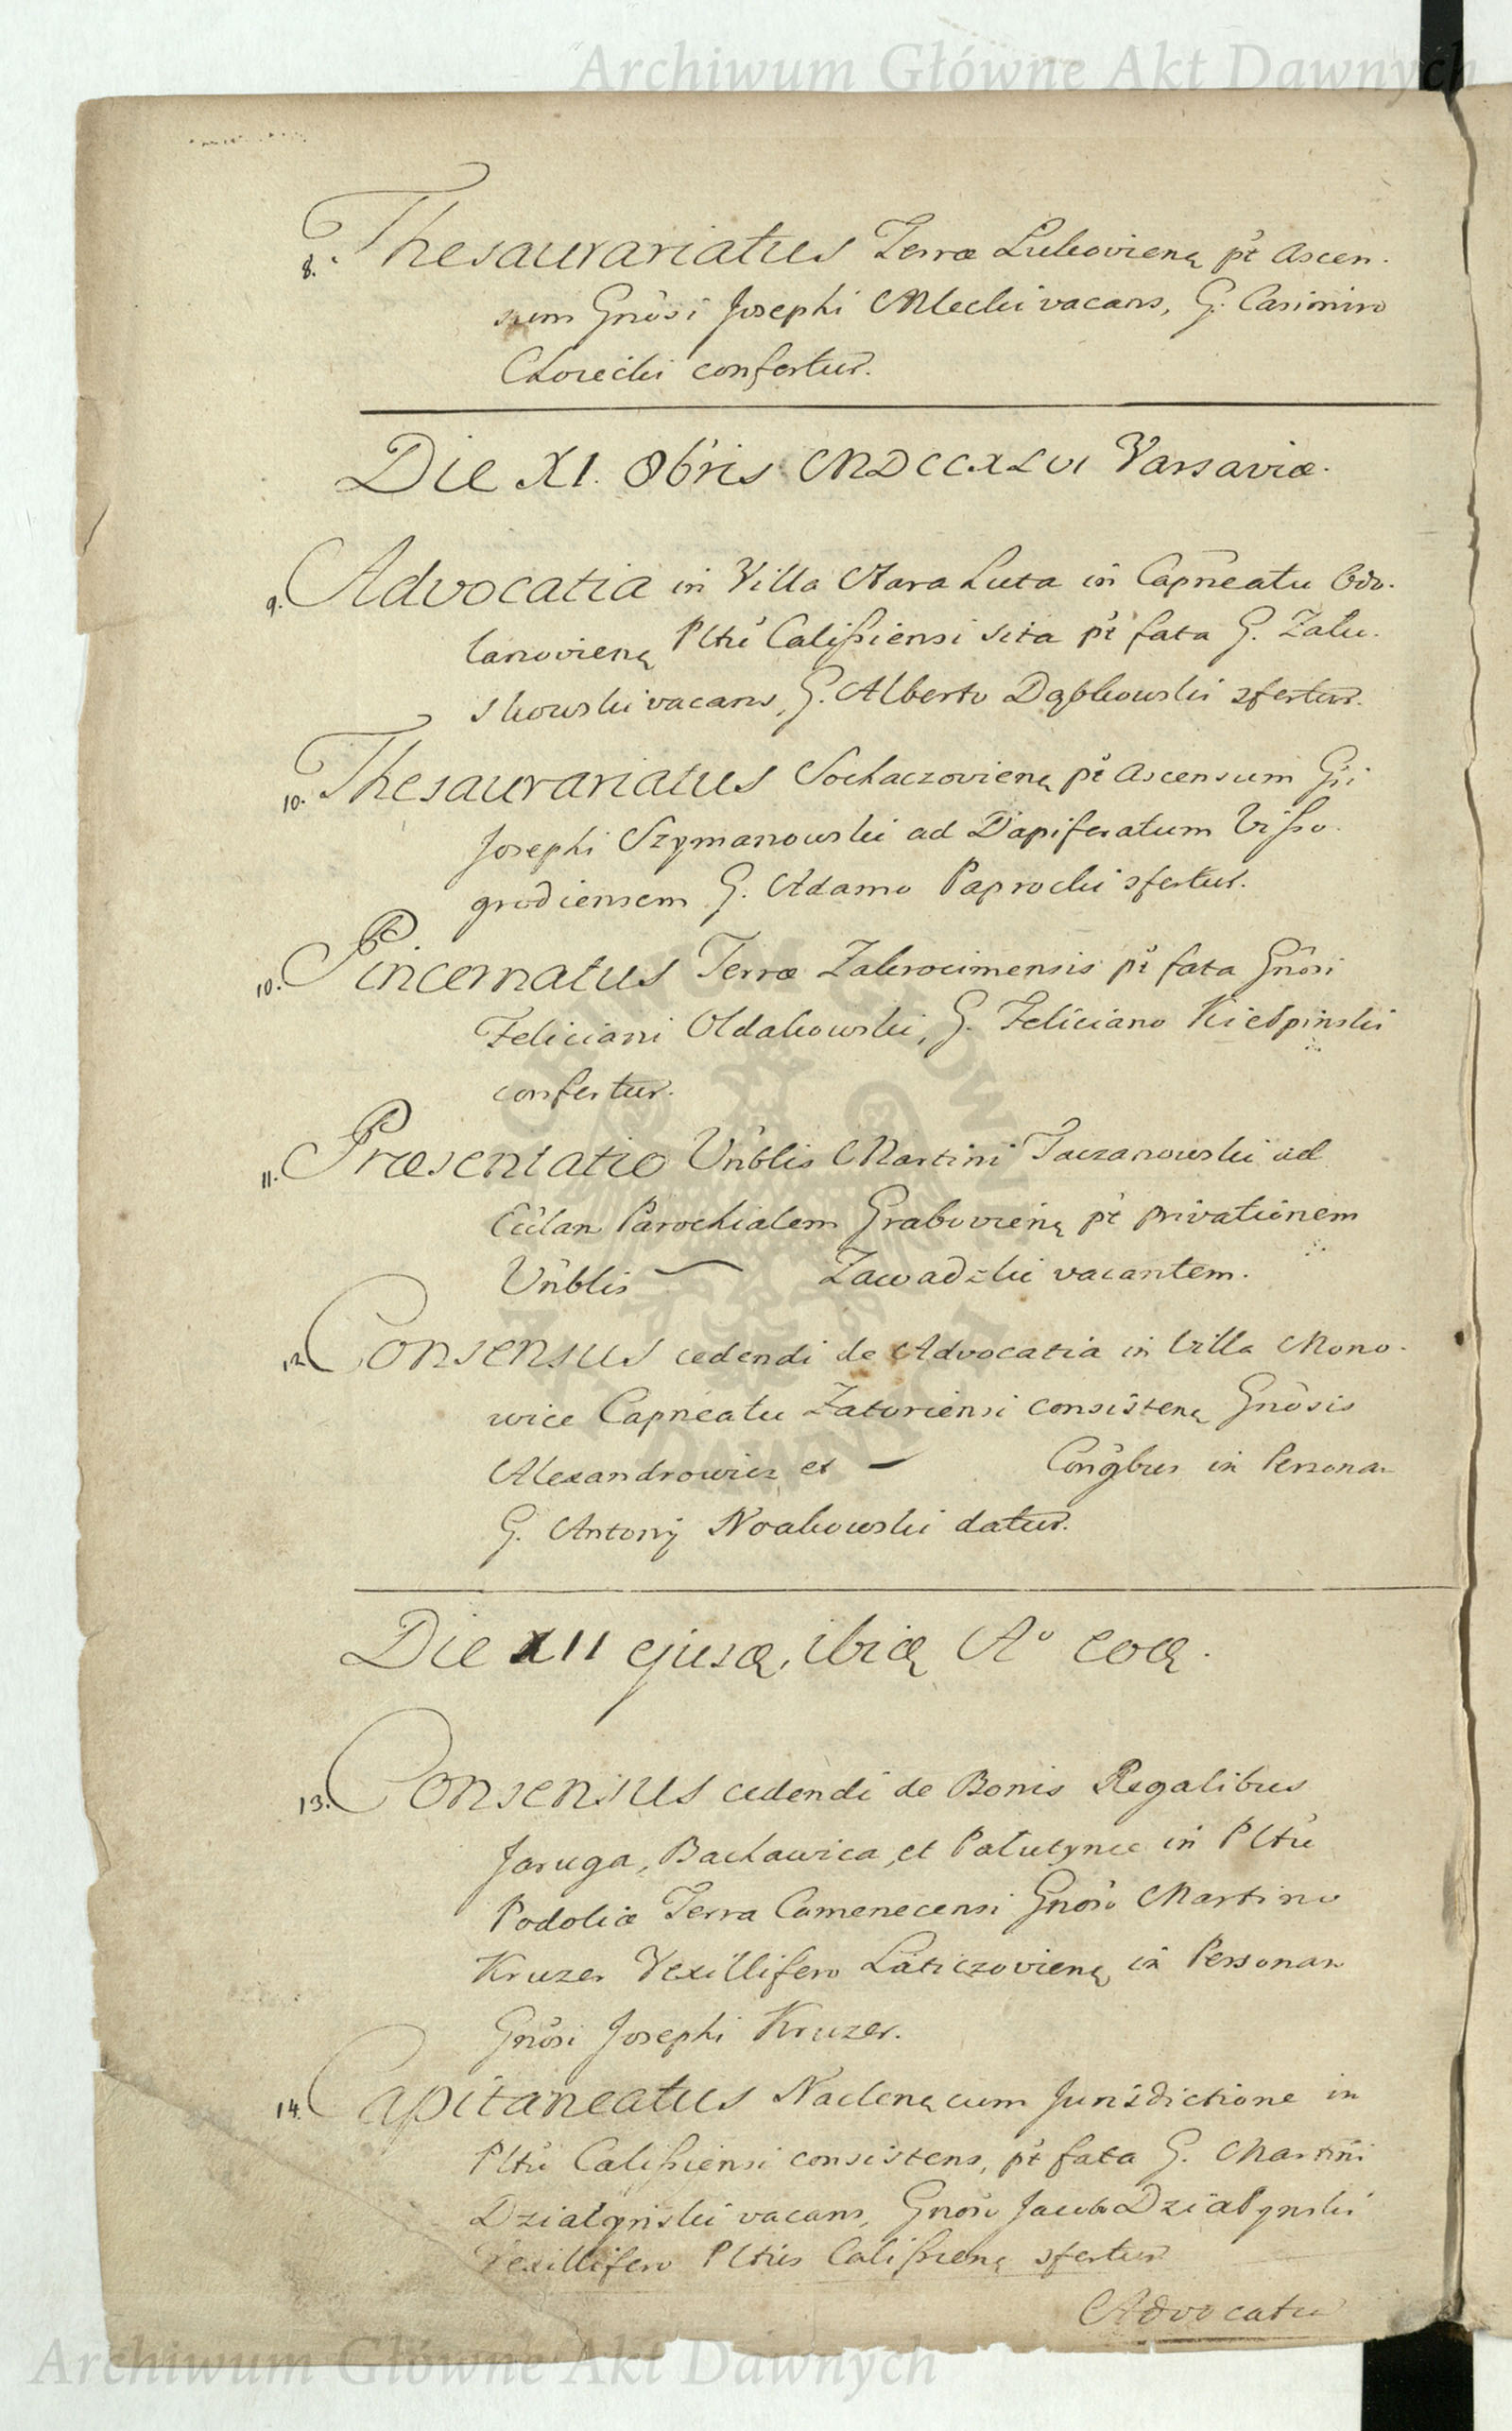 Archiwum Główne Akt Dawnych
8. Thesaurariatus Terræ Lukovienq pt Ascen-
sum Gnosi Josephi Mlecki vacans, G. Casimiro
Chorecki confertur.
Die XI. 8bris MDCCXLVI Varsaviæ.
9. Advocatia in Villa Stara Luta in Capneatu Odo-
lanovienq Pltu Calissiensi sita pt fata G. Zalu-
skowski vacans, G. Alberto Dąbkowski sfertur.
10. Thesaurariatus Sochaczovienq pt Ascensum Gsi
Josephi Szymanowski ad Dapiferatum Visso-
grodiensem G. Adamo Paprocki sfertur.
10. Pincernatus Terræ Zakrocimensis pt fata Gnosi
Feliciani Oldakowski, G. Feliciano Kiełpinski
confertur.
11. Præsentatio Vnblis Martini Taczanowski ad
Ecclan Parochialem Grabovienq pt privationem
Vnblis Zawadzki vacantem.
12. Consensus cedendi de Advocatia in Villa Mono-
wice Capneatu Zatoriensi consistenq Gnosis
Alexandrowicz et Congbus in Personan
G. Antonij Noakowski datur.
Die XII ejusq, ibiq Aº eoq.
13. Consensus cedendi de Bonis Regalibus
Jaruga, Bachawica, et Pałutynce in Pltu
Podoliæ Terra Camenecensi Gnoso Martino
Kruzer Vexillifero Laticzovienq in Personan
Gnosi Josephi Kruzer.
14. Capitaneatus Naclenq cum Jurisdictione in
Pltu Calissiensi consistens, pt fata G. Martini
Działynski vacans, Gnoso Jacobo Działynski
Vexillifero Pltus Calissienq sfertur
Advocatu
Archiwum Główne Akt Dawnych